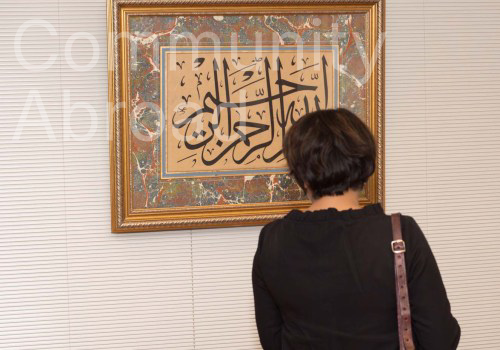 Community
Abroad
الله الرحمن الرحيم